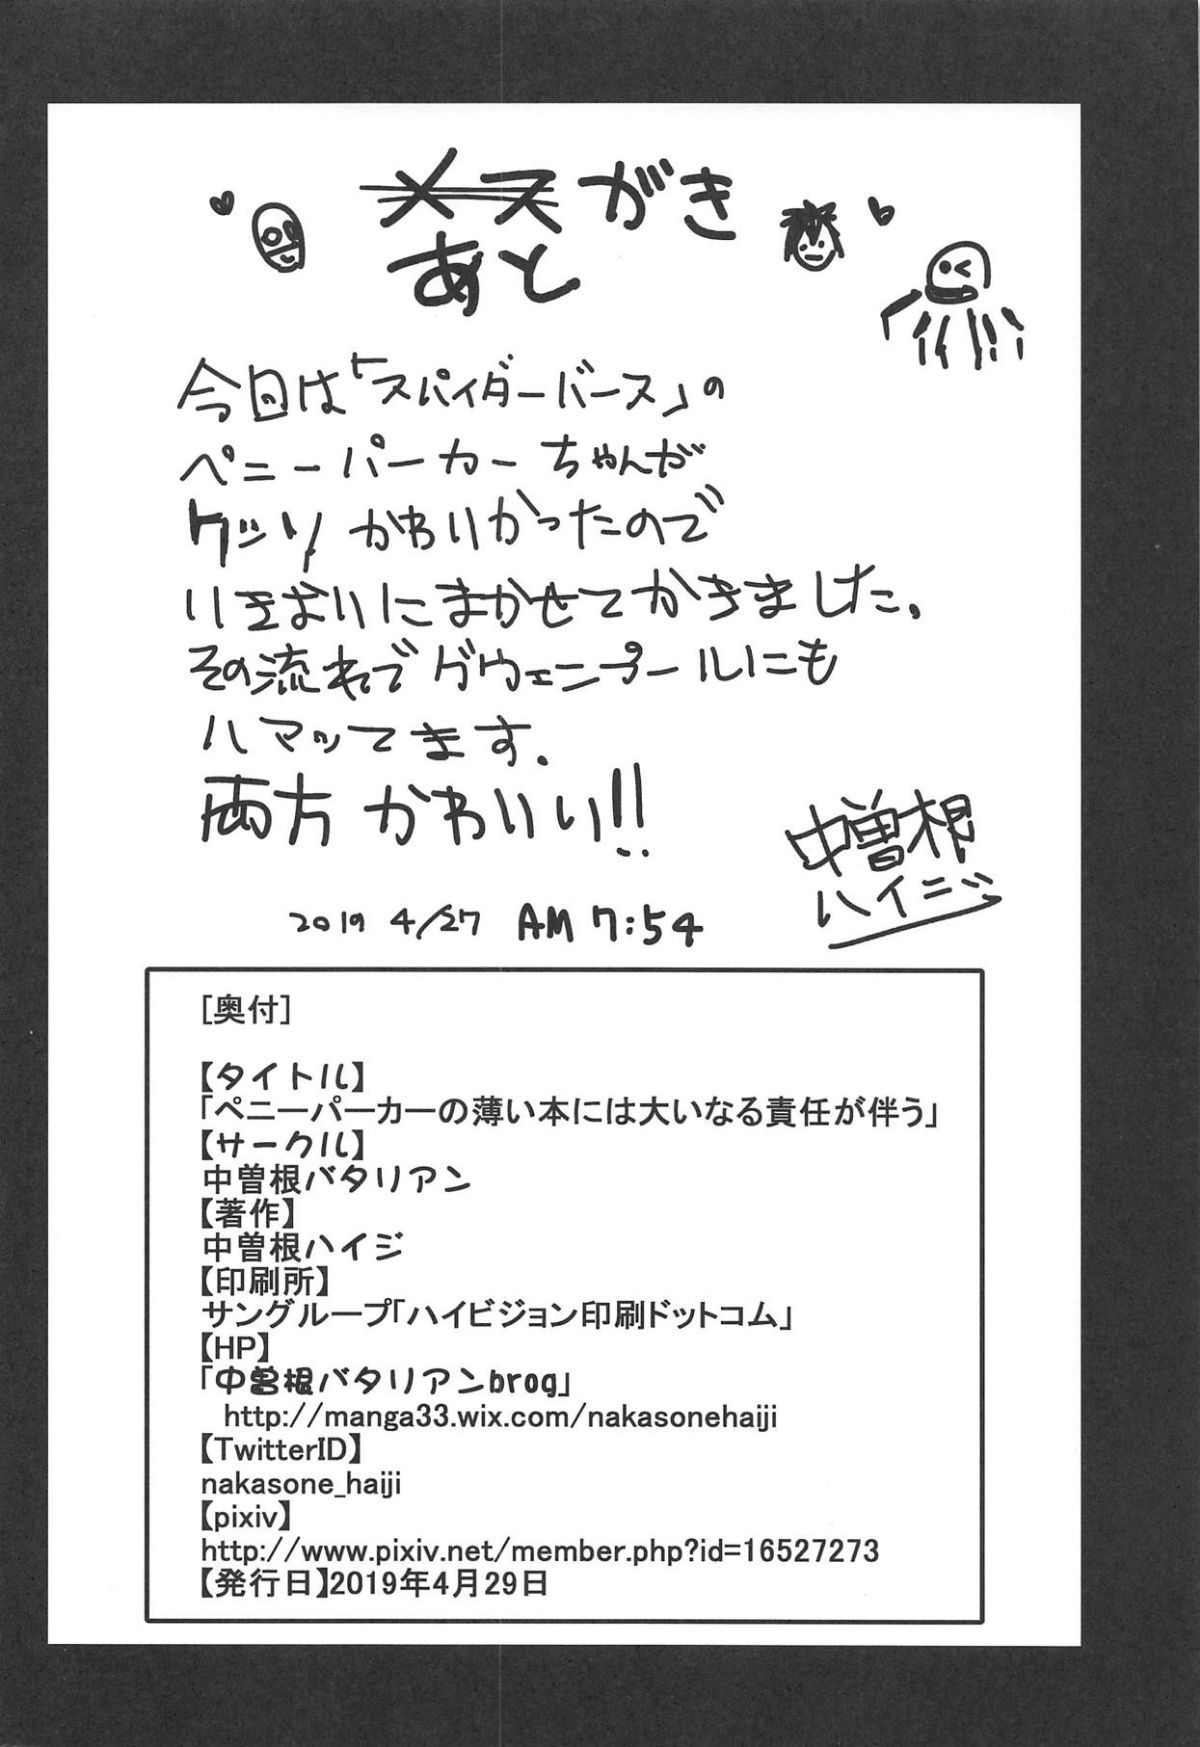 メスがき
あと
今日は「スパイダーバース」の
ペニーパーカーちゃんが
ケッソかわいかったので
いきおいにまかせてかきました。
その流れでグウェンプールにも
ハマッてます.
両方かわいい!!
中曽根
ハイジ
2019 4/27 AM 7:54
[奥付]
【タイトル】
「ペニーパーカーの薄い本には大いなる責任が伴う」
【サークル】
中曽根バタリアン
【著作】
中曽根ハイジ
【印刷所】
サングループ「ハイビジョン印刷ドットコム」
【HP】
「中曽根バタリアンbrog」
http://manga33.wix.com/nakasonehaiji
【TwitterID】
nakasone_haiji
【pixiv】
http://www.pixiv.net/member.php?id=16527273
【発行日】2019年4月29日